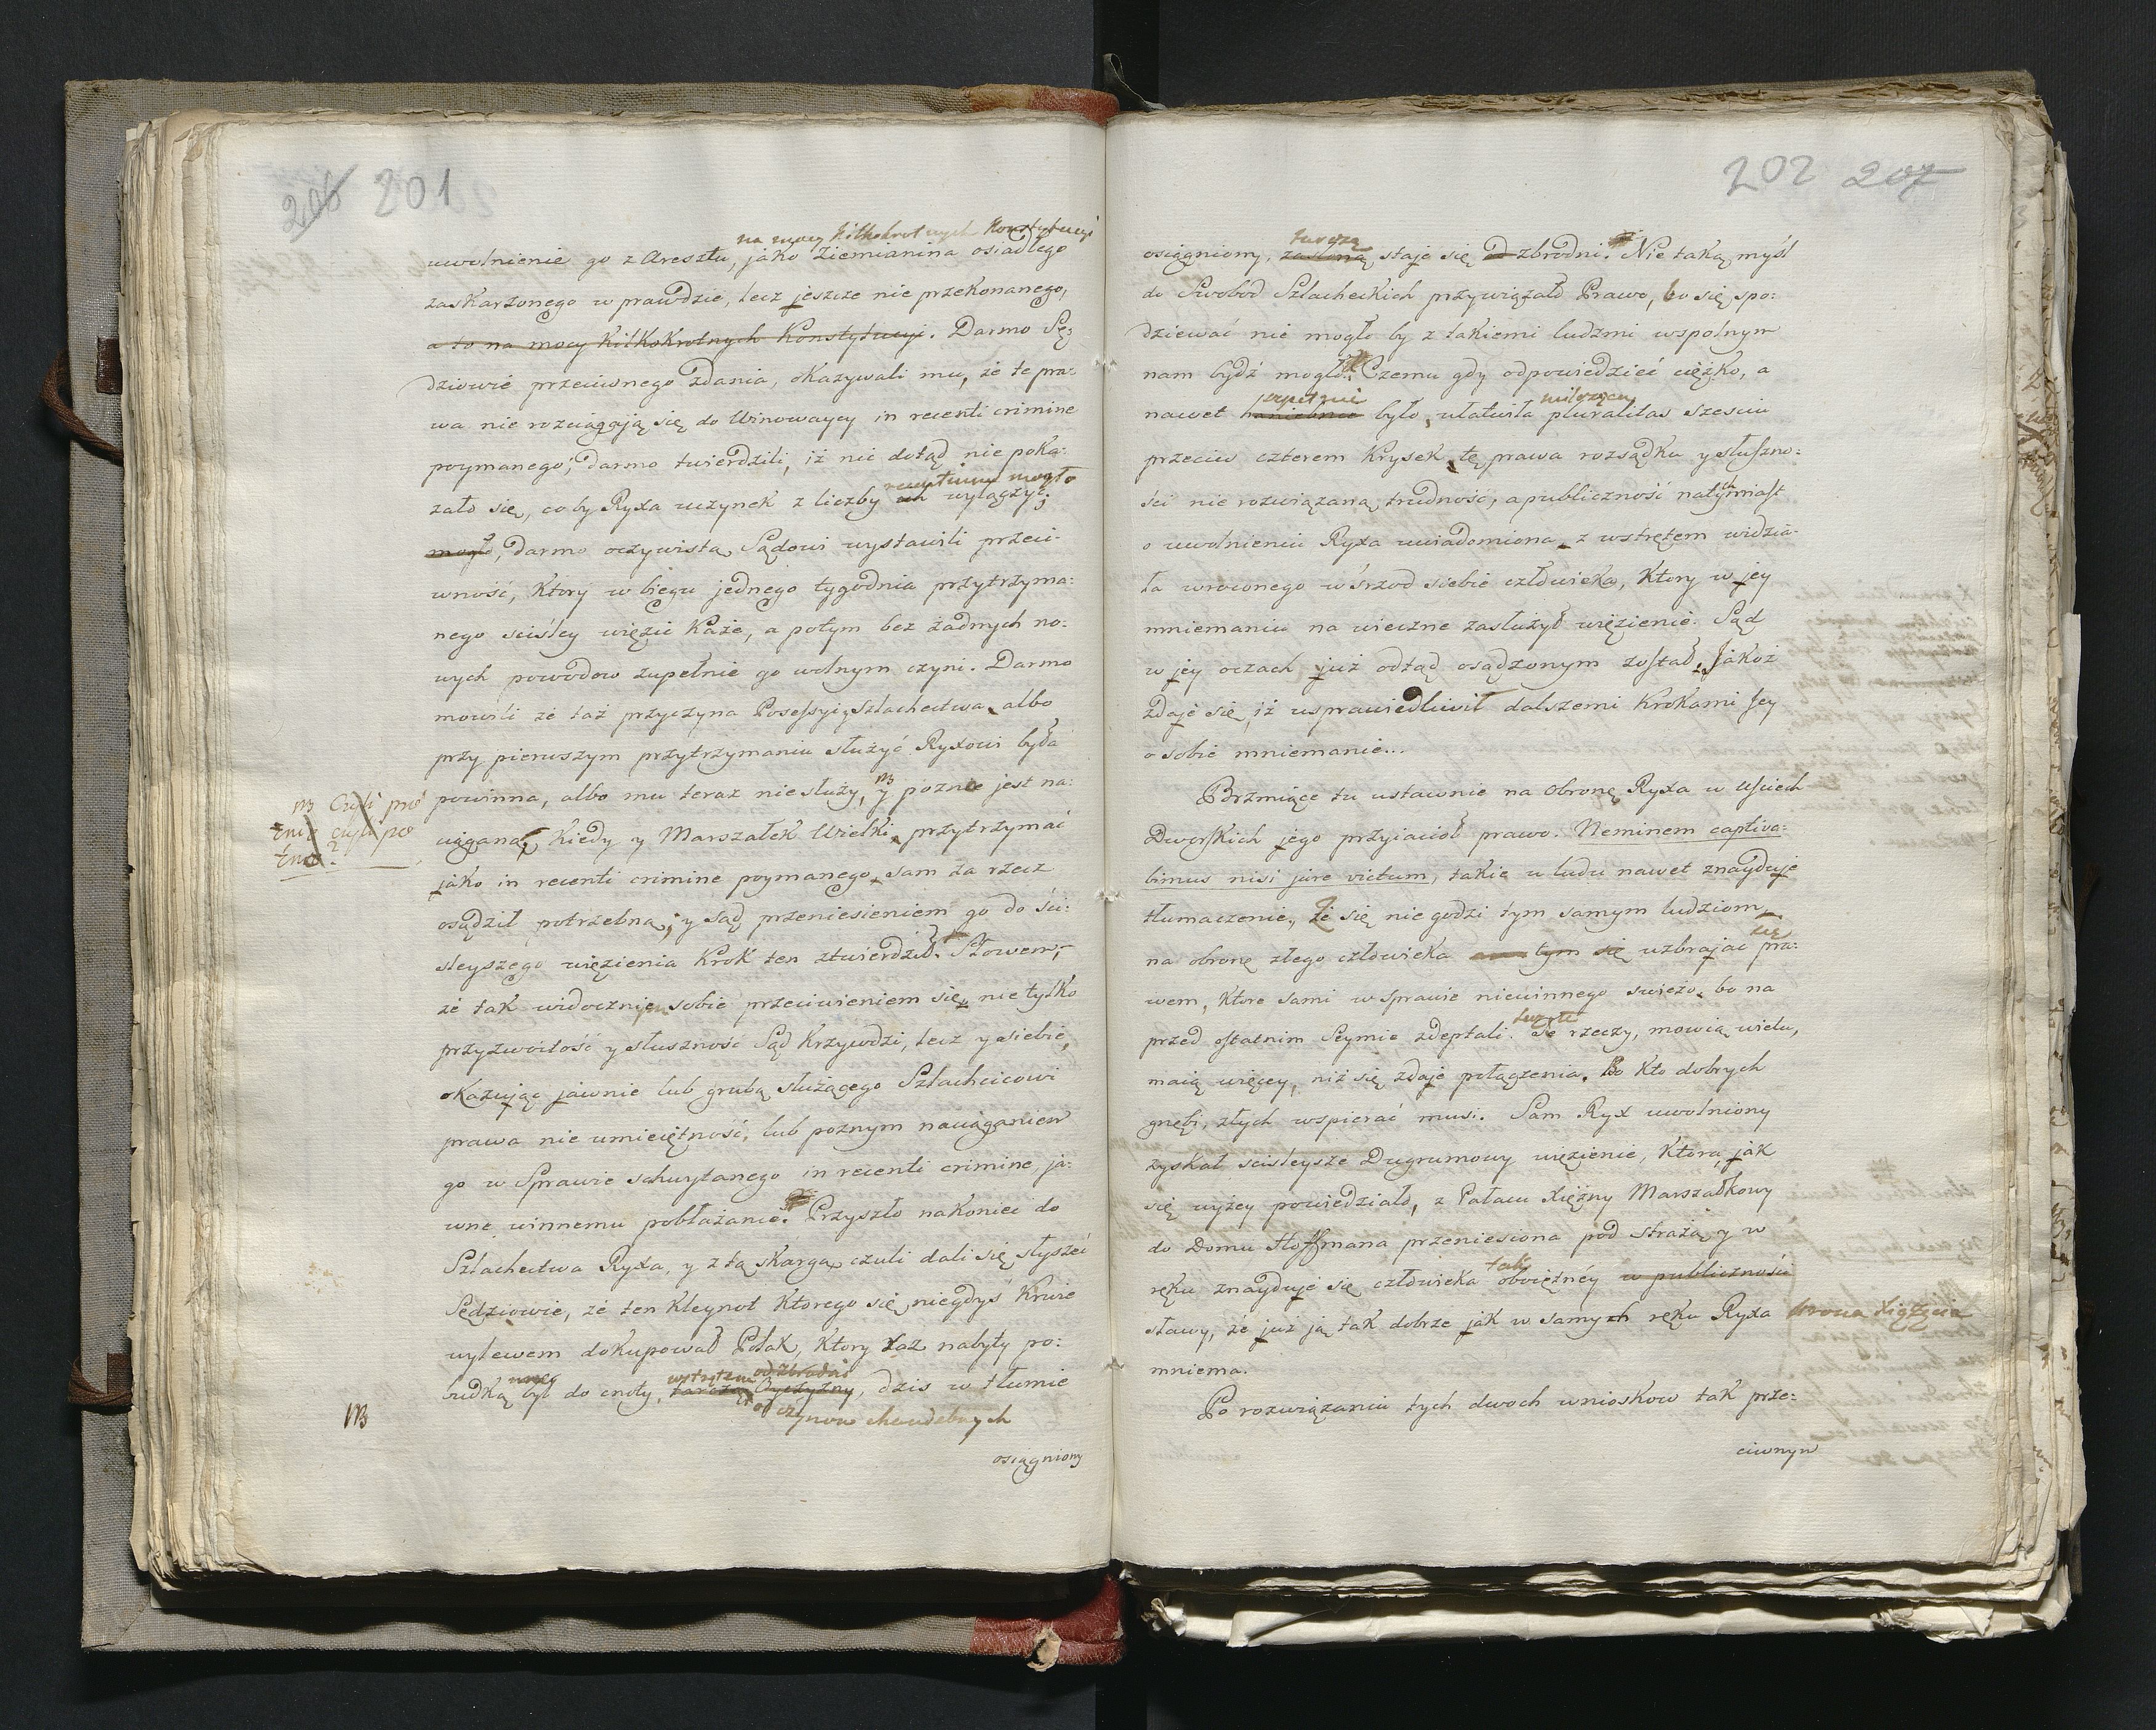 206 201
na mocy kilkokrotnych Konstytucyi
uwolnienie go z Aresztu, jako Ziemianina osiadłego
zaskarzonego w prawdzie, lecz jeszcze nie przekonanego,
a to na mocy Kilkokrotnych Konstytucyi. Darmo Sę:
dziowie przeciwnego zdania, okazywali mu, że te pra:
wa nie rozciągają się do Winowaycy in recenti crimine
poymanego; darmo twierdzili, iż nic dotąd nie poka:
recentium mogło
zało się, coby Ryxa uczynek z liczby wyłączyć;
mogło, darmo oczywistą Sądowi wystawili przeci-
wność, Ktory w biegu jednego tygodnia przytrzyma:
nego sciśley więzić Każe, a potym bez żadnych no:
wych powodow zupełnie go wolnym czyni. Darmo
mowili że taż przyczyna Posessyi y Szlachectwa albo
przy pierwszym przytrzymaniu służyć Ryxowi była
powinna, albo mu teraz nie służy, y poznie jest na:
NB Czyli
ciągana, Kiedy y Marszałek Wielki przytrzymać
jako in recenti crimine poymanego, sam za rzecz
osądził potrzebną; y Sąd przeniesieniem go do ści:
sleyszego więzienia Krok ten ztwierdził. Słowem,
że tak widocznie sobie przeciwieniem się, nie tylko
przyzwoitość y słuszność Sąd Krzywdzi, lecz y siebie,
okazując jawnie lub grubą służącego Szlachcicowi
prawa nie umieiętność, lub poznym naciąganiem
go w Sprawie schwytanego in recenti crimine, ja:
wne winnemu pobłażanie. Przyszło nakoniec do
Szlachectwa Ryxa, y z tą skargą czuli dali się słyszeć
Sędziowie, że ten Kleynot Ktorego się niegdyś Krwie
wylewem dokupował Polak, Ktory raz nabyty po:
wstrętem od zbrodni
budką był do cnoty, tarczą Oyczyzny, dzis w tłumie
od czynow chwalebnych
NB
osiągniony
202 207
tarczą
osiągniony, zasłoną staje się zbrodni. Nie taką myśl
do Swobod Szlacheckich przywiązało Prawo, bo się spo:
dziewać nie mogło by z takiemi ludzmi wspolnym
nam bydź mogło. Czemu gdy odpowiedzieć ciężko, a
szpetnie milcząca
nawet haniebnie było, ułatwiła pluralitas szesciu
przeciw czterem Krysek tę prawa rozsądku y słuszno:
ści nie rozwiązaną trudność, a publiczność natymiast
o uwolnieniu Ryxa uwiadomiona z wstrętem widzia-
ła wroconego w śrzod siebie człowieka, Ktory w jey
mniemaniu na wieczne zasłużył więzienie. Sąd
w jey oczach już odtąd osądzonym został, Jakoż
zdaje się iż usprawiedliwił dalszemi Krokami Jey
o sobie mniemanie...
Brzmiące tu ustawnie na obronę Ryxa w Usciech
Dworskich jego przyiacioł prawo. Neminem captiva:
bimus nisi jure victum, takie u ludu nawet znayduje
tłumaczenie, Że się nie godzi tym samym ludziom
się
na obronę złego człowieka tym się uzbrajać pra:
wem, Ktore sami w Sprawie niewinnego swieżo bo na
przed ostatnim Seymie zdeptali. Te rzeczy, mowią wielu,
maią więcey, niż się zdaje połączenia. Bo Kto dobrych
gnębi, złych wspierać musi. Sam Ryx uwolniony
zyskał scisleysze Dugrumowy więzienie, Ktora, jak
się wyżey powiedziało, z Pałacu Xiężny Marszałkowy
do Domu Hoffmana przeniesiona pod strażą y w
tak
ręku znayduje się człowieka obojętney w publiczności
sławy, że już ją tak dobrze jak w samych ręku Ryxa strona Xiążęcia
mniema.
Po rozwiązaniu tych dwoch wnioskow tak prze:
ciwnym